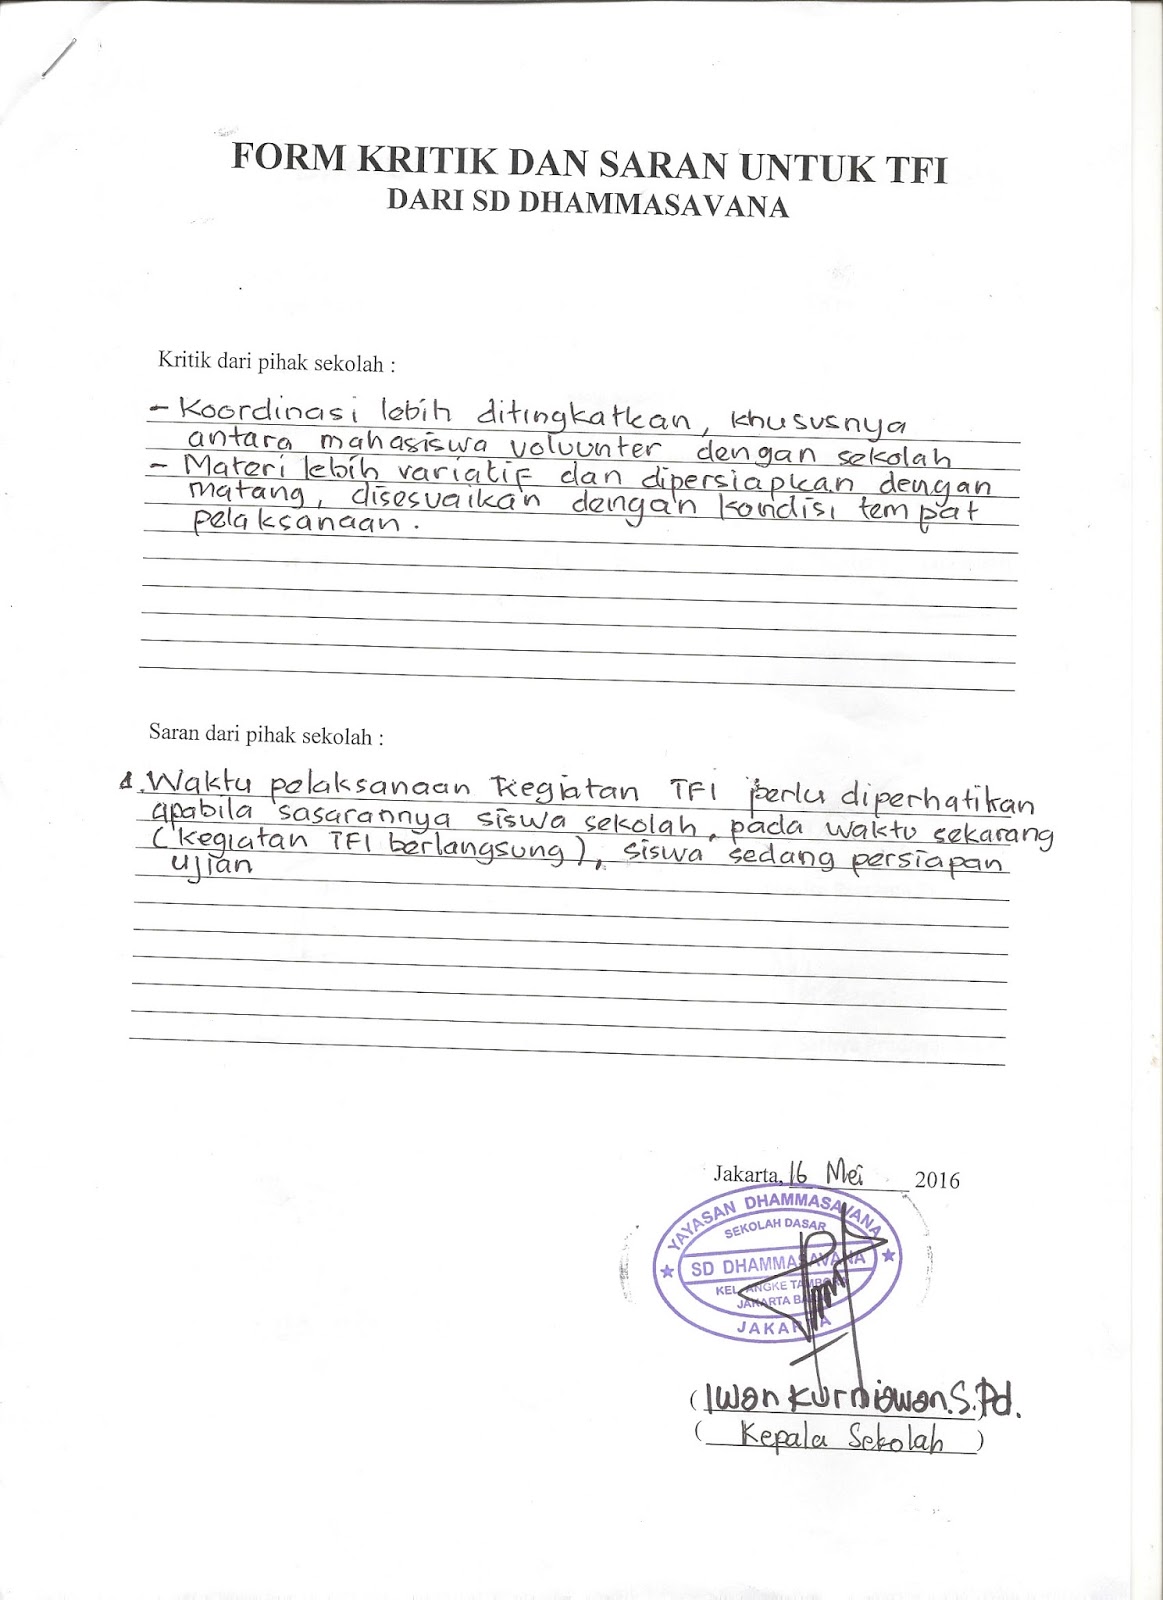 FORM KRITIK DAN SARAN UNTUK TFI
DARI SD DHAMMASAVANA
Kritik dari pihak sekolah :
- Koordinasi lebih ditingkatkan, khususnya
antara mahasiswa voluunter dengan sekolah
- Materi lebih variatif dan dipersiapkan dengan
matang, disesuaikan dengan kondisi tempat
pelaksanaan.
Saran dari pihak sekolah :
1. Waktu pelaksanaan Kegiatan TFI perlu diperhatikan
apabila sasarannya siswa sekolah, pada waktu sekarang
(kegiatan TFI berlangsung), siswa sedang persiapan
ujian
Jakarta, 16 Mei 2016
YAYASAN DHAMMASAVANA
SEKOLAH DASAR
SD DHAMMASAVANA
KEL. ANGKE TAMBORA
JAKARTA BARAT
JAKARTA
(Iwan Kurniawan. S.Pd.
( Kepala Sekolah )